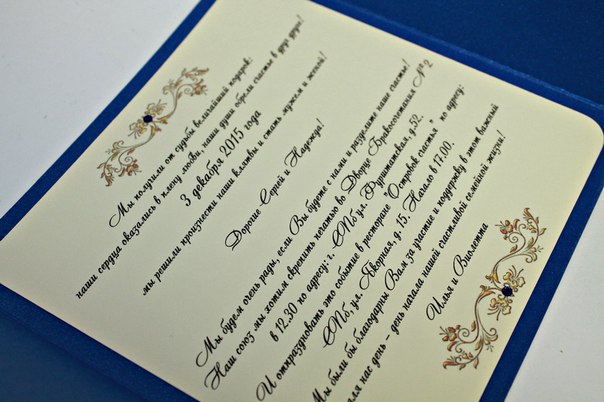 Мы получили от судьбы величайший подарок:
наши сердца оказались в плену любви, наши души обрели счастье в друг друге!
3 декабря 2015 года
мы решили произнести наши клятвы и стать мужем и женой!
Дорогие Сергей и Надежда!
Мы будем очень рады, если Вы будете с нами и разделите наше счастье!
Наш союз мы хотим скрепить печатью во Дворце Бракосочетания №2
в 12.30 по адресу: г. СПб, ул. Фурштатская, д.52.
И отпраздновать это событие в ресторане "Островок счастья" по адресу:
СПб, ул. Якорная, д. 15, Начало в 17.00.
Мы были бы благодарны Вам за участие и поддержку в этот важный
для нас день – день начала нашей счастливой семейной жизни!
Илья и Виолетта